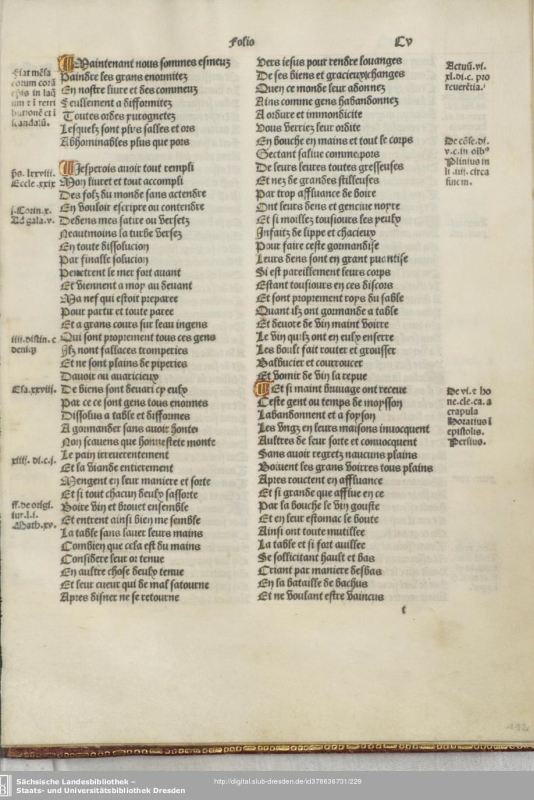 Folio
CV
Maintenant nous sommes esmeuz
Paindre les grans enormitez
En nostre liure et des commeuz
Seullement a difformitez
Toutes ordes yurongnetez
Lesquelz sont plus salles et ors
Abhominables plus que pors
Jesperois auoir tout rempli
Mon liuret et tout accompli
Des folz du monde sans actendre
En vouloir escripre ou contendre
Dedens mes satire ou versetz
Neautmoins la turbe versez
En toute dissolucion
Par finalle solucion
Penetrent le mer fort auant
Et viennent a moy au deuant
Ma nef qui estoit preparee
Pour partir et toute paree
Et a grans cours sur leau ingens
Qui sont proprement tous ces gens
Ilz nont fallaces tromperies
Et ne sont plains de piperies
Dauoir ou auaricieux
De biens sont deuant cy euly
Par ce ce sont gens tous enormes
Dissolus a table et difformes
A gormander sans auoir honte
Non scauens que honnestete monte
Le pain irreuerentement
Et la viande entierement
Mengent en leur maniere et sorte
Et si tout chacun deuly sassorte
Boire vin et brouet ensemble
Et entrent ainsi bien me semble
La table sans lauer leurs mains
Combien que cela est du mains
Considere leur or tenue
En aultre chose deuly tenue
Et leur cueur qui de mal satourne
Apres disner ne se retourne
Vers iesus pour rendre louanges
De ses biens et gracieux changes
Quen ce monde leur adonnez
Ains comme gens habandonnez
A ordure et immondicite
Vous verriez leur ordite
En bouche en mains et tout le corps
Sectant saliue comme pors
De leurs leures toutes gresseuses
Et nez de grandes stilleuses
Par trop affluance de boire
Ont leurs dens et genciue noyre
Et si moillez tousiours les peulx
Infaitz de lippe et chacieux
Pour faire ceste gormandise
Leurs dens sont en grant puantise
Si est pareillement leurs corps
Estant tousiours en ces discors
Et sont proprement roys du sable
Quant ilz ont gormande a table
Et deuore de vin maint voirre
Le vin quilz ont en eulx enserre
Les boult fait router et grousser
Balbucier et courroucer
Et vomir de vin la repue
Et si maint bruuage ont receue
Ceste gent ou temps de moysson
Labandonnent et a foyson
Les vngz en leurs maisons inuocquent
Aultres de leur sorte et conuocquent
Sans auoir regretz naucuns plains
Boiuent les grans voirres tous plains
Apres rouctent en affluance
Et si grande que afflue en ce
Par la bouche le vin gouste
Et en leur estomac le boute
Ainsi ont toute mutillee
La table et si fort auillee
Se sollicitant hault et bas
Criant par maniere desbas
En la bataille de bachus
Et ne voulant estre vaincus
t
Fiat mensa
eorum corā
ip̄is in laq̄
um ⁊ ī retri
butionē et ī
scandalū.
ps. lxxviii.
Eccle. xxix
j. Corin. x.
Ad gala. v.
iiii. distin. c
deniq̄
Esa. xxviii.
xliiij. di. c. j.
ff. de origi.
iur. l. i.
Math. xv.
Actuū. vi.
xl. di. c. pro
reuerētia.
De cōse. di.
v. c. in oībꝰ
Plinius in
li .iiij. circa
finem.
De vi. ⁊ ho
ne. cle. ca. a
crapula
Horatius ī
epistolis.
Persius.
192
Sächsische Landesbibliothek –
Staats- und Universitätsbibliothek Dresden
http://digital.slub-dresden.de/id378636731/229